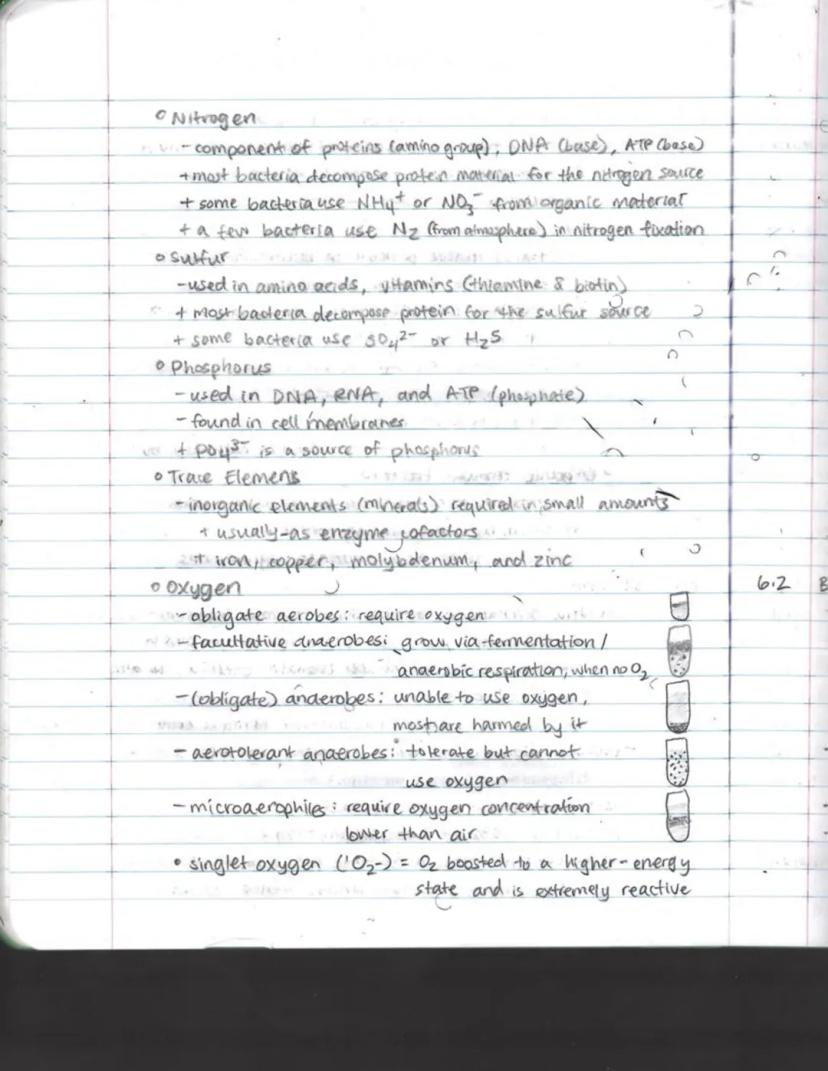 ° Nitrogen
- component of proteins (amino group), DNA (base), ATP (base)
+ most bacteria decompose protein material for the nitrogen source
+ some bacteria use NH4+ or NO3- from organic material
+ a few bacteria use N2 (from atmosphere) in nitrogen fixation
° Sulfur
- used in amino acids, vitamins (thiamine & biotin)
+ most bacteria decompose protein for the sulfur source
+ some bacteria use SO4 2- or H2S
° Phosphorus
- used in DNA, RNA, and ATP (phosphate)
- found in cell membranes
+ PO4 3- is a source of phosphorus
° Trace Elemens
- inorganic elements (minerals) required in small amounts
+ usually as enzyme cofactors
+ iron, copper, molybdenum, and zinc
° Oxygen
6.2
- obligate aerobes: require oxygen
- facultative anaerobes: grow via fermentation /
anaerobic respiration, when no O2
- (obligate) anaerobes: unable to use oxygen,
most are harmed by it
- aerotolerant anaerobes: tolerate but cannot
use oxygen
- microaerophiles: require oxygen concentration
lower than air
• singlet oxygen (¹O2-) = O2 boosted to a higher-energy
state and is extremely reactive